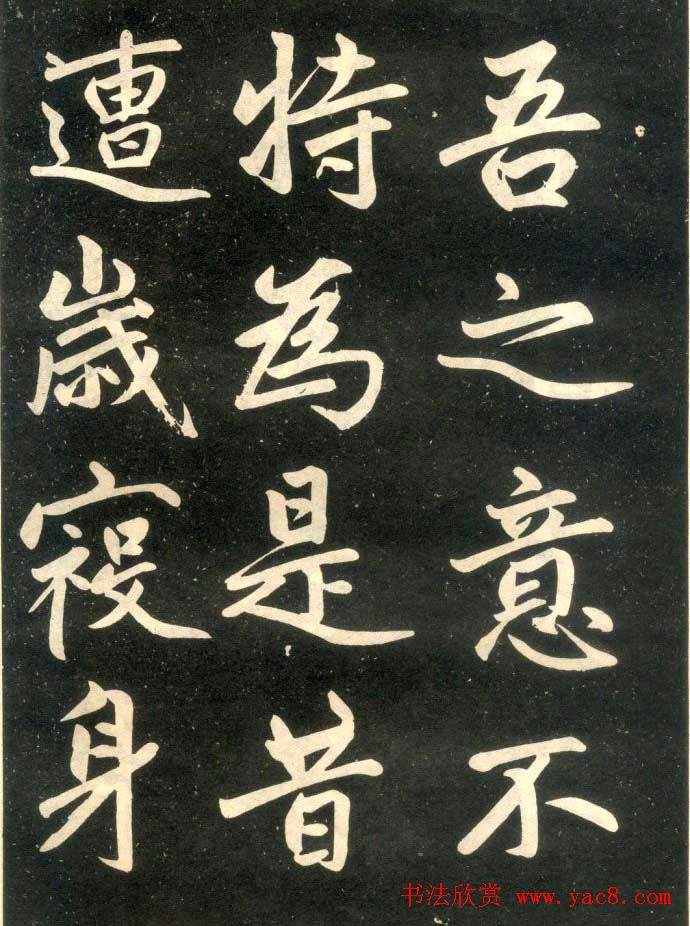 吾之意不
特為是昔
遭歲身
书法欣赏 www.yac8.com